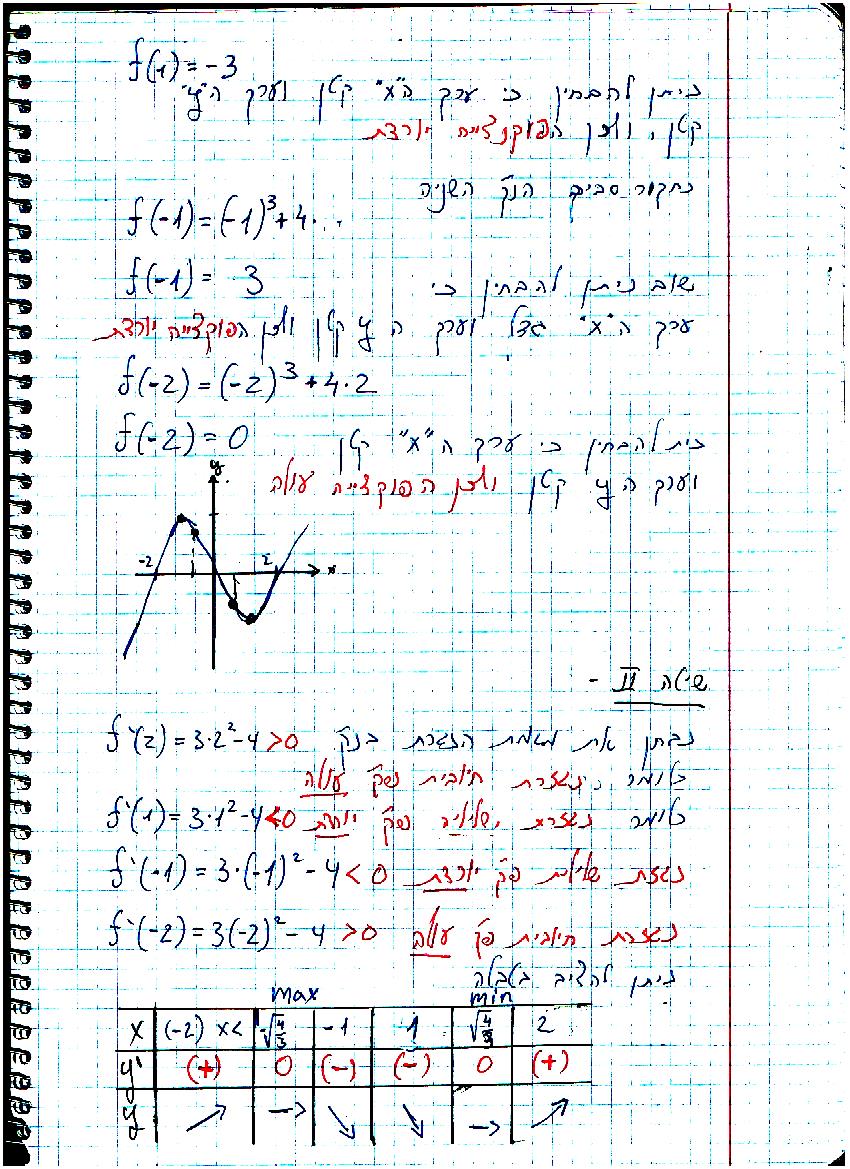 f(1) = -3
ניתן להבחין כי ערך ה"x" קטן וערך ה"y"
קטן, ולכן הפוקנצייה יורדת
נחקור סביב הנק' השניה
f(-1) = (-1)³+4...
f(-1) = 3
שוב ניתן להבחין כי
ערך ה"x" גדל וערך ה y קטן ולכן הפוקצייה יורדת
f(-2) = (-2)³+4·2
f(-2) = 0
להבחין כי ערך ה"x" קטן
וערך ה y קטן ולכן הפוקצייה עולה
y
-2 2 x
שיטה II -
f'(2) = 3·2²-4>0 נבחן את הנגזרת בנק'
כלומר נגזרת חיובית עולה
f'(1) = 3·1²-4<0 כלומר נגזרת שלילית
f'(-1) = 3·(-1)²-4<0 נגזרת שלילית פק' יורדת
f'(-2) = 3(-2)²-4>0 נגזרת חיובית פק' עולה
ניתן להציב בטבלה
max min
x (-2) x< -√4/3 -1 1 √4/3 2
y' (+) 0 (-) (-) 0 (+)
y ↗ → ↘ ↘ → ↗